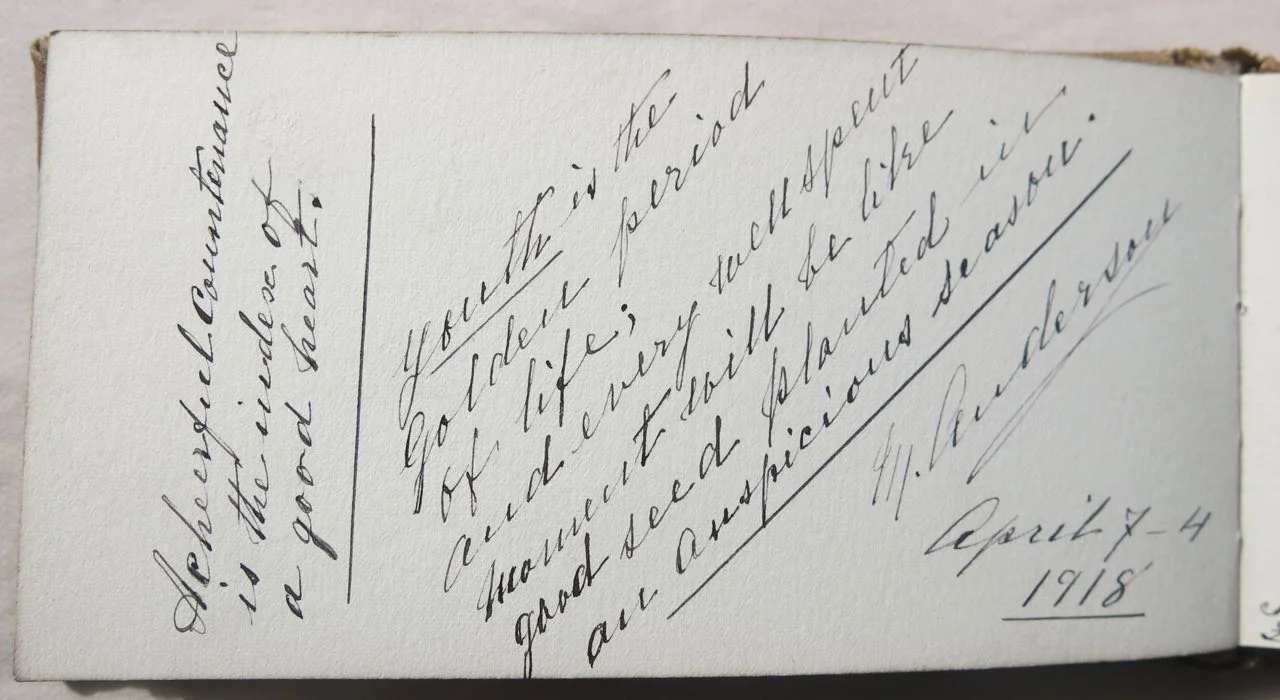 A cheerful countenance
is the index of
a good heart.
Youth is the
Golden period
of life;
and every well spent
moment will be like
good seed planted in
an auspicious season.
M. Anderson
April 7-4
1918